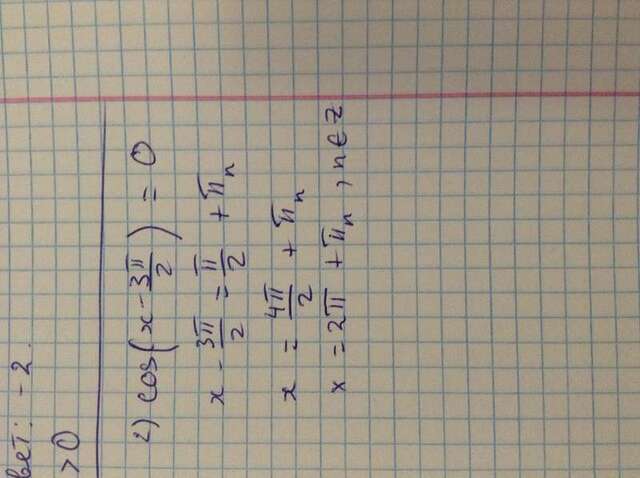 вет: -2.
>0
2) cos(x - 3π/2) = 0
x - 3π/2 = π/2 + πn
x = 4π/2 + πn
x = 2π + πn, n ∈ Z